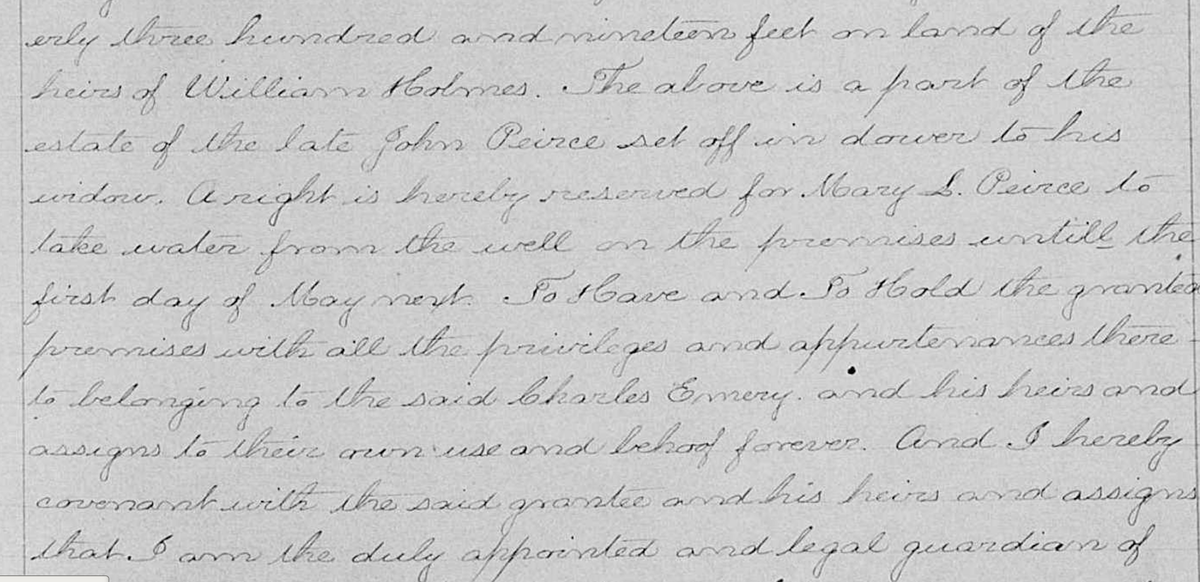 erly three hundred and nineteen feet on land of the
heirs of William Holmes. The above is a part of the
estate of the late John Peirce set off in dower to his
widow. A right is hereby reserved for Mary S. Peirce to
take water from the well on the premises untill the
first day of May next. To Have and To Hold the granted
premises with all the privileges and appurtenances there-
to belonging to the said Charles Emery. and his heirs and
assigns to their own use and behoof forever. And I hereby
covenant with the said grantee and his heirs and assigns
that I am the duly appointed and legal guardian of